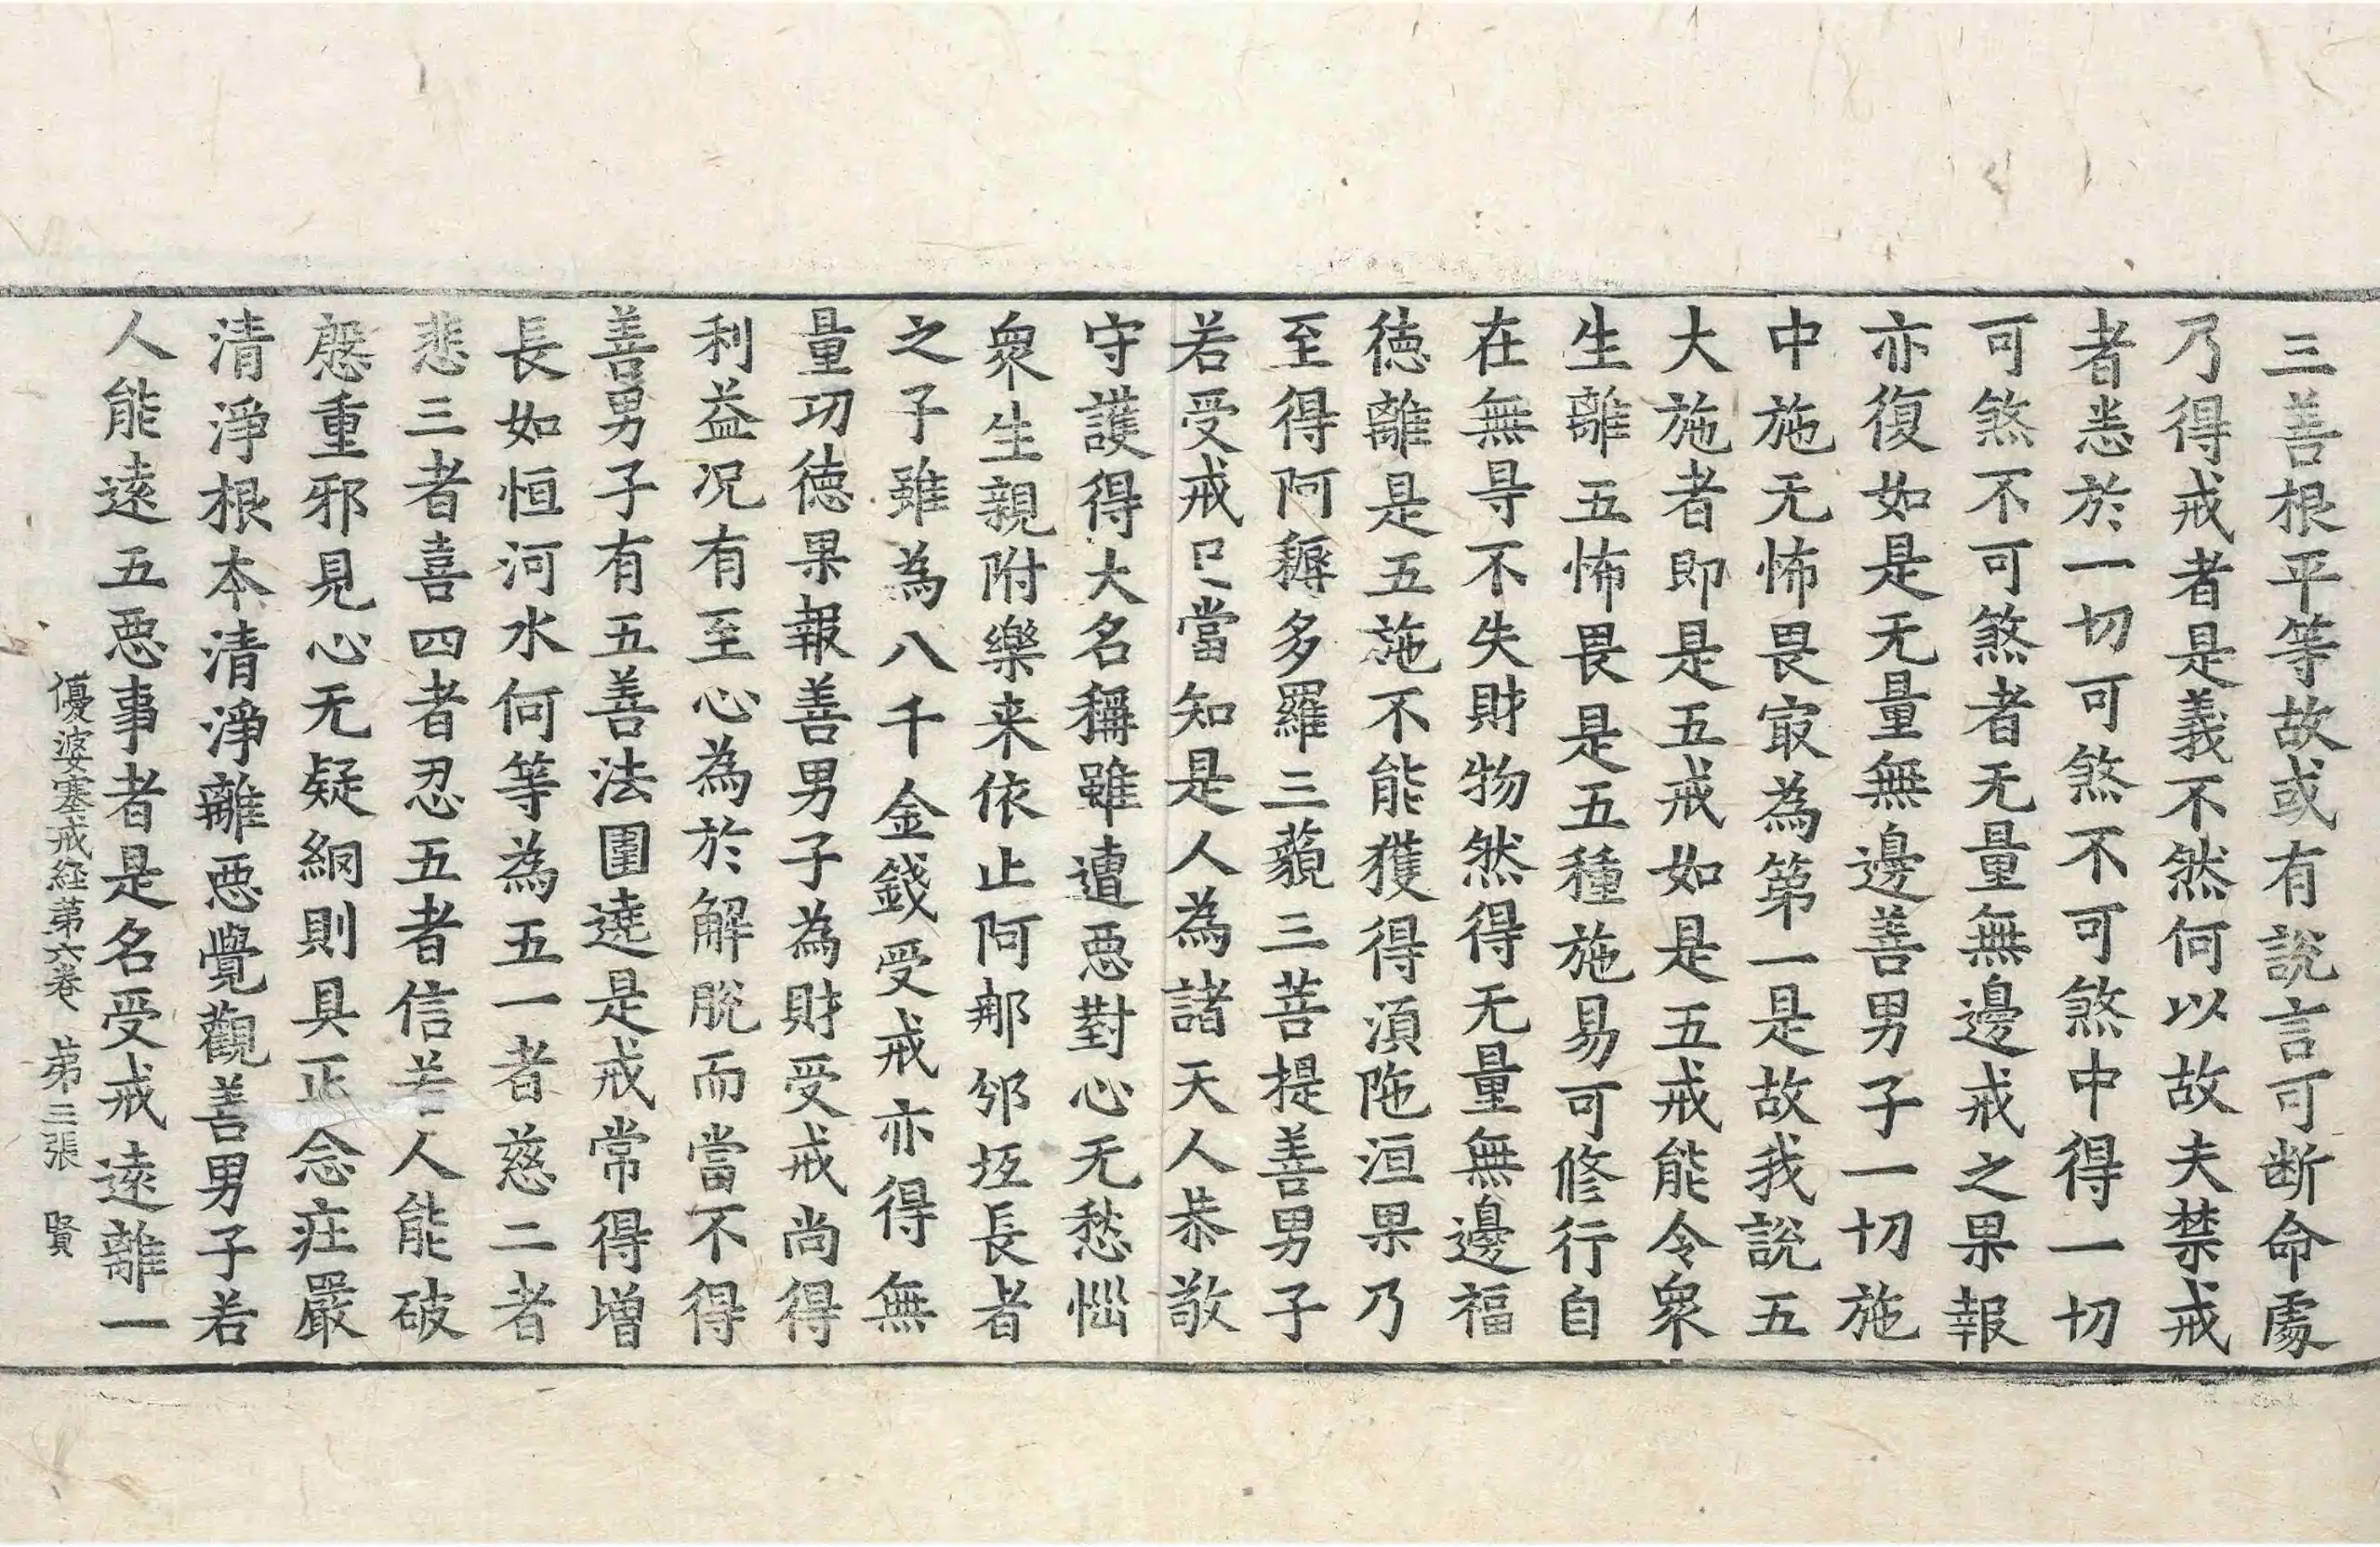 三善根平等故或有說言可断命處
乃得戒者是義不然何以故夫禁戒
者悉於一切可煞不可煞中得一切
可煞不可煞者无量無邊戒之果報
亦復如是无量無邊善男子一切施
中施无怖畏㝡為第一是故我說五
大施者即是五戒如是五戒能令衆
生離五怖畏是五種施易可修行自
在無㝵不失財物然得无量無邊福
徳離是五施不能獲得湏陁洹果乃
至得阿耨多羅三藐三菩提善男子
若受戒已當知是人為諸天人恭敬
守護得大名稱雖遭惡對心无愁惱
衆生親附樂来依止阿那邠坻長者
之子雖為八千金錢受戒亦得無
量功徳果報善男子為財受戒尚得
利益况有至心為於解脫而當不得
善男子有五善法圍遶是戒常得增
長如恒河水何等為五一者慈二者
悲三者喜四者忍五者信若人能破
慇重邪見心无疑網則具正念莊嚴
清淨根本清淨離惡覺觀善男子若
人能遠五惡事者是名受戒遠離一
優婆塞戒経第六卷 第三張 賢